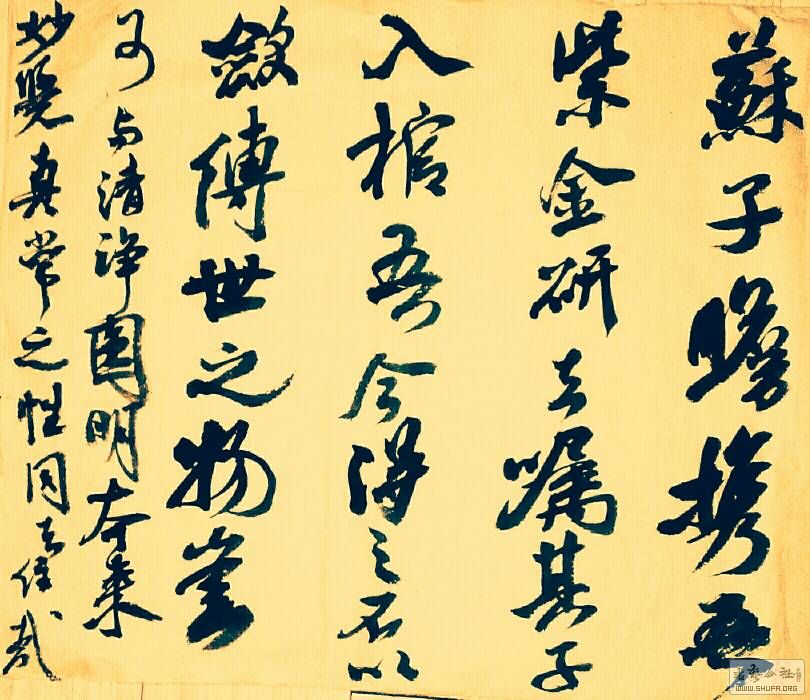 蘇子瞻携吾
紫金研去囑其子
入棺吾今得之不以
斂傳世之物豈
可与清淨圓明本來
妙覺真常之性同去住哉
WWW.SHUFA.ORG